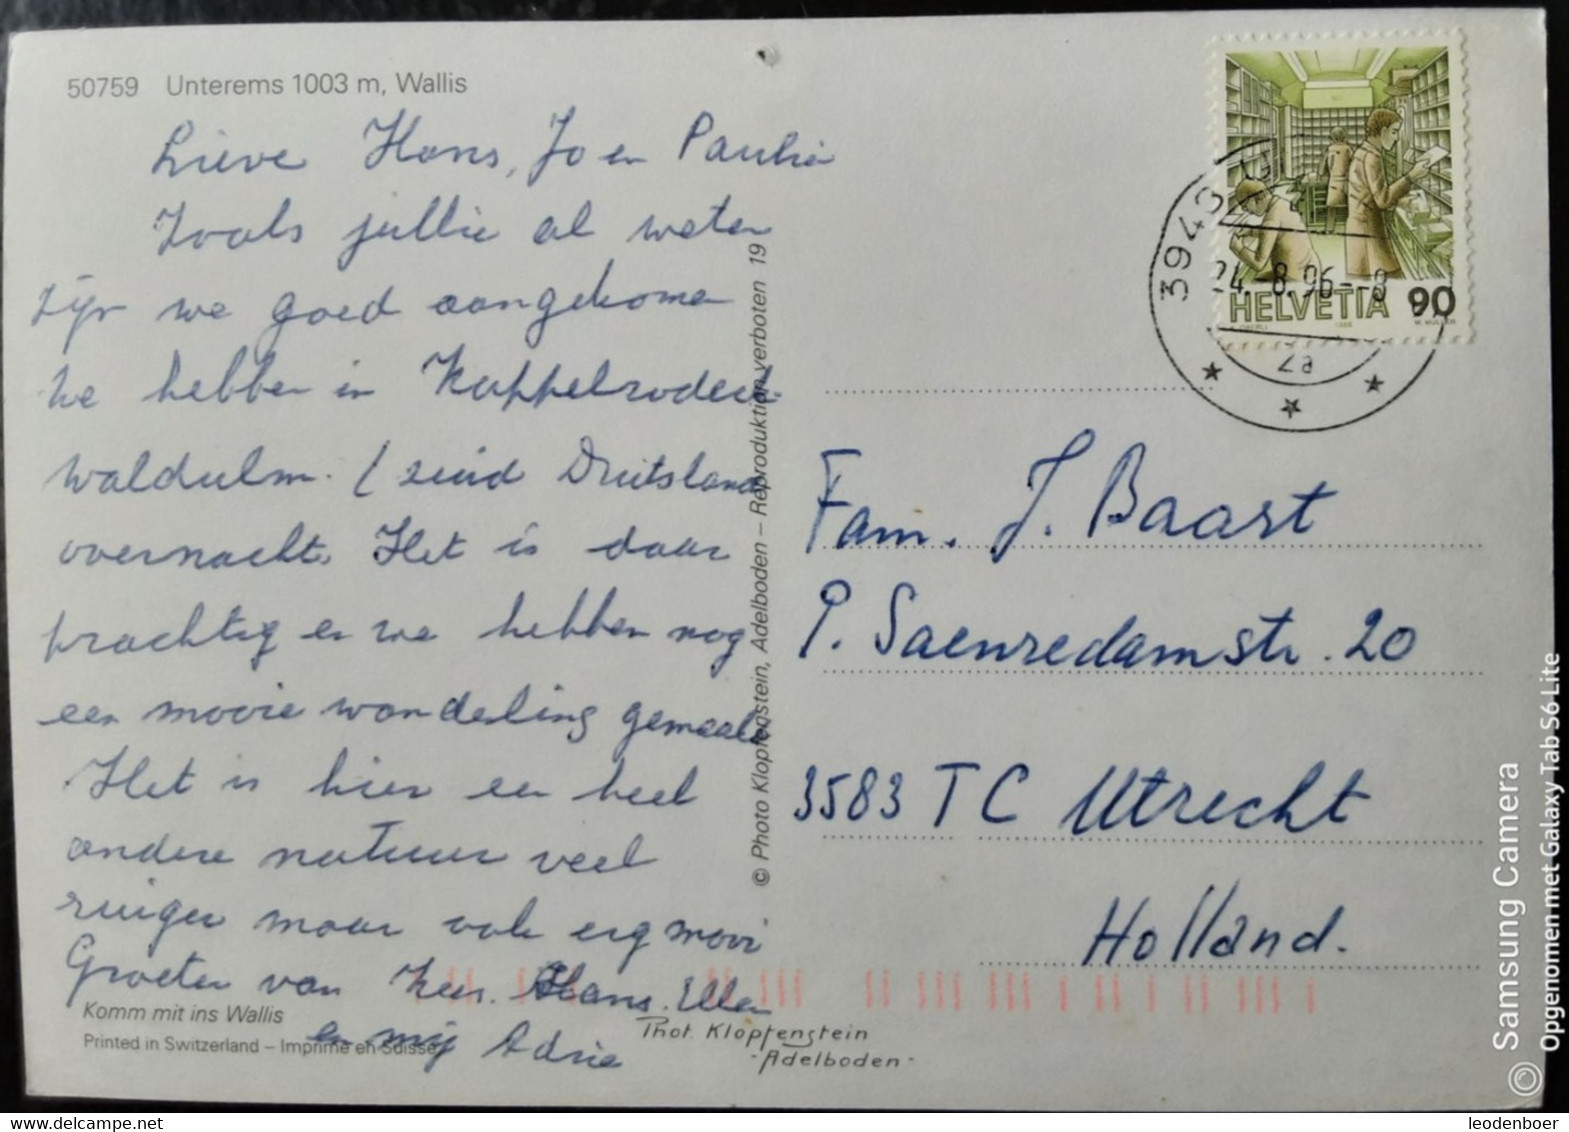 50759 Unterems 1003 m, Wallis
Lieve Hans, Jo en Paulien
Zoals jullie al weten
zijn we goed aangekomen
We hebben in Kappelrodeck
waldulm. (zuid Duitsland
overnacht. Het is daar
prachtig en we hebben nog
een mooie wandeling gemaakt
Het is hier een heel
andere natuur veel
ruiger maar ook erg mooi
Groeten van Kees. Hans. Ellen
en mij Adrie
Komm mit ins Wallis
Printed in Switzerland – Imprimé en Suisse
© Photo Klopfenstein, Adelboden – Reproduktion verboten 19
Phot. Klopfenstein
- Adelboden -
HELVETIA 90
3940
24.-8.96--8
Fam. J. Baart
P. Saenredamstr. 20
3583 TC Utrecht
Holland.
Samsung Camera
Opgenomen met Galaxy Tab S6 Lite
leodenboer